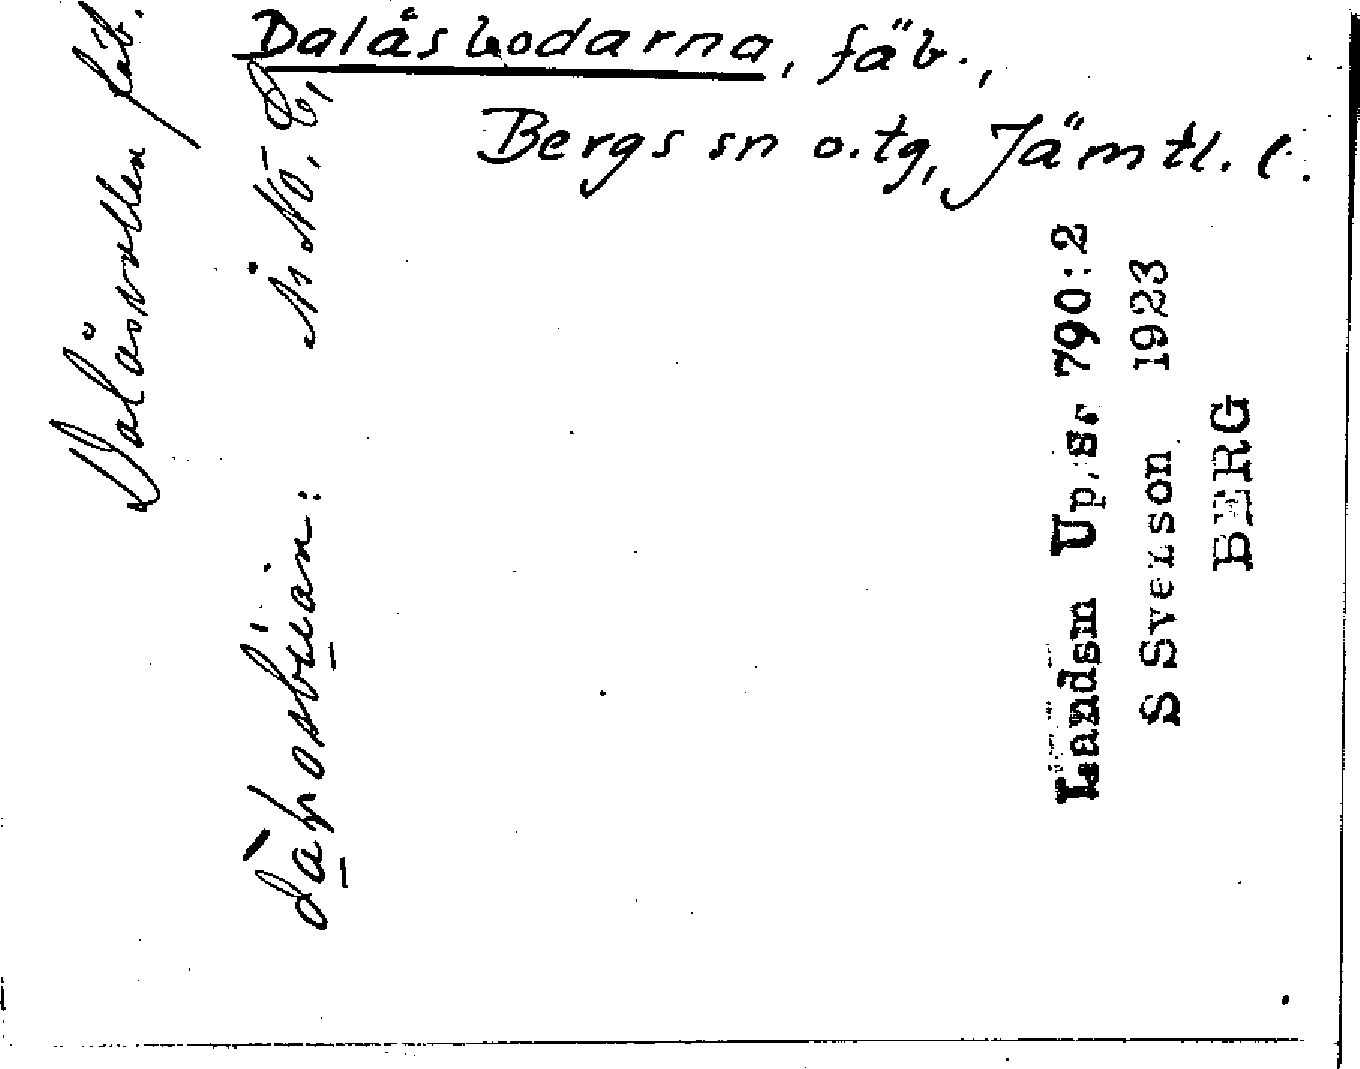 Dalåsbodarna, fäb.,
Bergs sn o. tg, Jämtl. l.
Dalåsvallen fäb.
Landsm Ups. 790:2
S Svenson 1923
BERG